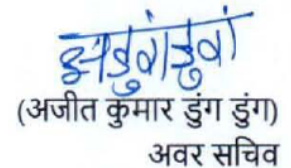 (अजीत कुमार डुंग डुंग)
अवर सचिव